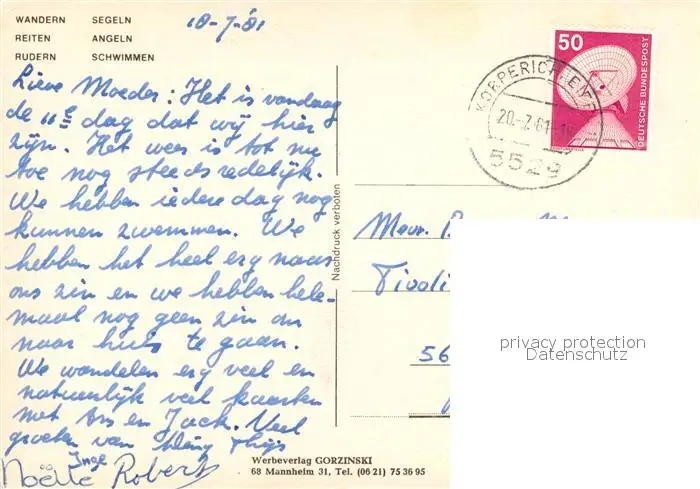 WANDERN SEGELN
REITEN ANGELN
RUDERN SCHWIMMEN
18-7-'81
Lieve Moeder: Het is vandaag
de 11e dag dat wij hier
zijn. Het weer is tot nu
toe nog steeds redelijk.
We hebben iedere dag nog
kunnen zwemmen. We
hebben het heel erg naar
ons zin en we hebben hele-
maal nog geen zin om
naar huis te gaan.
We wandelen erg veel en
natuurlijk veel kaarten
met Ans en Jack. Veel
groeten van Thijs
Inge
Noëlle Robert
Nachdruck verboten
Werbeverlag GORZINSKI
68 Mannheim 31, Tel. (06 21) 75 36 95
50
DEUTSCHE BUNDESPOST
KÖRPERICH
20.-7.81
5529
Mevr.
Tivoli
56
privacy protection
Datenschutz